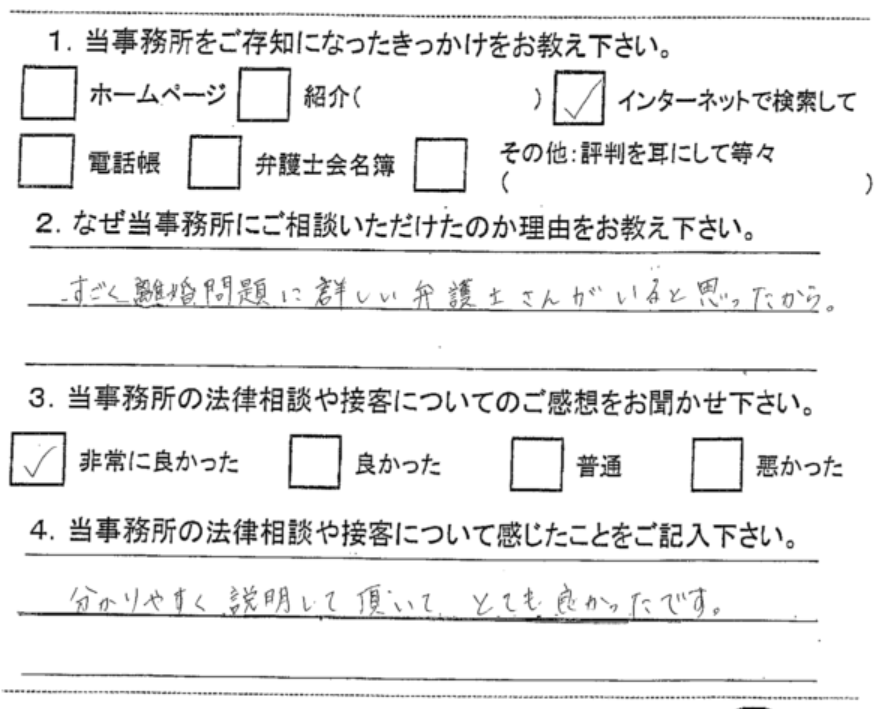 1. 当事務所をご存知になったきっかけをお教え下さい。
ホームページ 紹介( ) インターネットで検索して
電話帳 弁護士会名簿 その他:評判を耳にして等々
( )
2. なぜ当事務所にご相談いただけたのか理由をお教え下さい。
すごく離婚問題に詳しい弁護士さんがいると思ったから。
3. 当事務所の法律相談や接客についてのご感想をお聞かせ下さい。
非常に良かった 良かった 普通 悪かった
4. 当事務所の法律相談や接客について感じたことをご記入下さい。
分かりやすく説明して頂いて、とても良かったです。